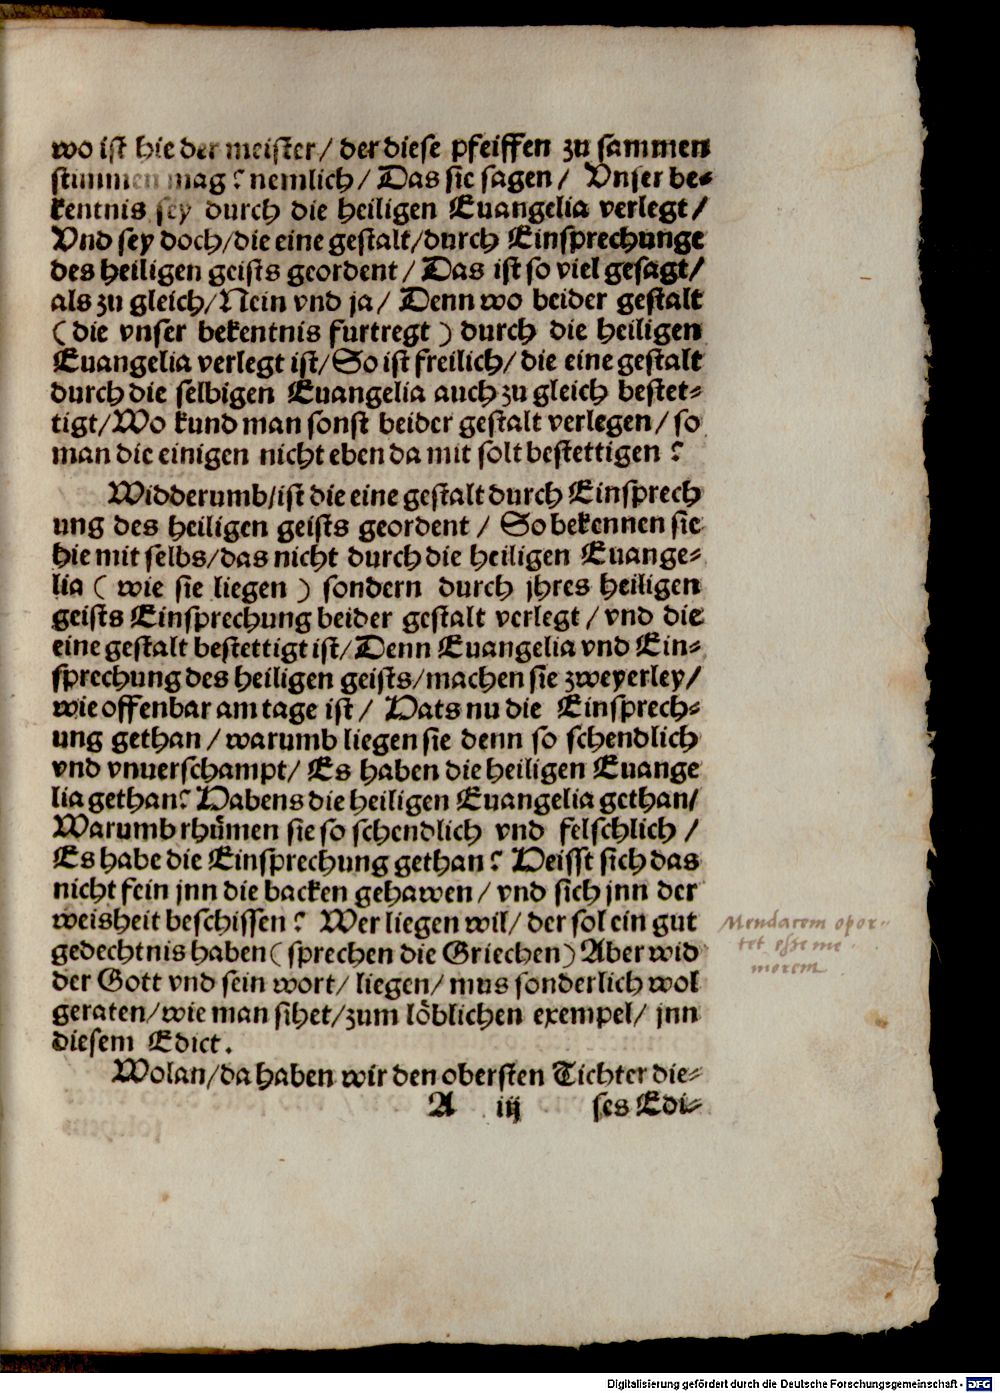 wo ist hie der meister/ der diese pfeiffen zu sammen
stimmen mag? nemlich/ Das sie sagen/ Vnser be-
kentnis sey durch die heiligen Euangelia verlegt/
Vnd sey doch/die eine gestalt/durch Einsprechunge
des heiligen geists geordent/ Das ist so viel gesagt/
als zu gleich/Nein vnd ja/ Denn wo beider gestalt
(die vnser bekentnis furtregt) durch die heiligen
Euangelia verlegt ist/So ist freilich/ die eine gestalt
durch die selbigen Euangelia auch zu gleich bestet-
tigt/Wo kund man sonst beider gestalt verlegen/ so
man die einigen nicht eben da mit solt bestettigen?
Widderumb/ist die eine gestalt durch Einsprech
ung des heiligen geists geordent/ So bekennen sie
hie mit selbs/das nicht durch die heiligen Euange-
lia (wie sie liegen) sondern durch jhres heiligen
geists Einsprechung beider gestalt verlegt/ vnd die
eine gestalt bestettigt ist/Denn Euangelia vnd Ein-
sprechung des heiligen geists/machen sie zweyerley/
wie offenbar am tage ist/ Hats nu die Einsprech-
ung gethan/ warumb liegen sie denn so schendlich
vnd vnuerschampt/ Es haben die heiligen Euange
lia gethan? Habens die heiligen Euangelia gethan/
Warumb rhümen sie so schendlich vnd felschlich/
Es habe die Einsprechung gethan? Heisst sich das
nicht fein jnn die backen gehawen/ vnd sich jnn der
weisheit beschissen? Wer liegen wil/ der sol ein gut
gedechtnis haben (sprechen die Griechen) Aber wid
der Gott vnd sein wort/ liegen/ mus sonderlich wol
geraten/wie man sihet/zum löblichen exempel/ jnn
diesem Edict.
Wolan/da haben wir den obersten Tichter die-
A iij ses Edi-
Mendacem opor-
tet esse me
morem
Digitalisierung gefördert durch die Deutsche Forschungsgemeinschaft - DFG